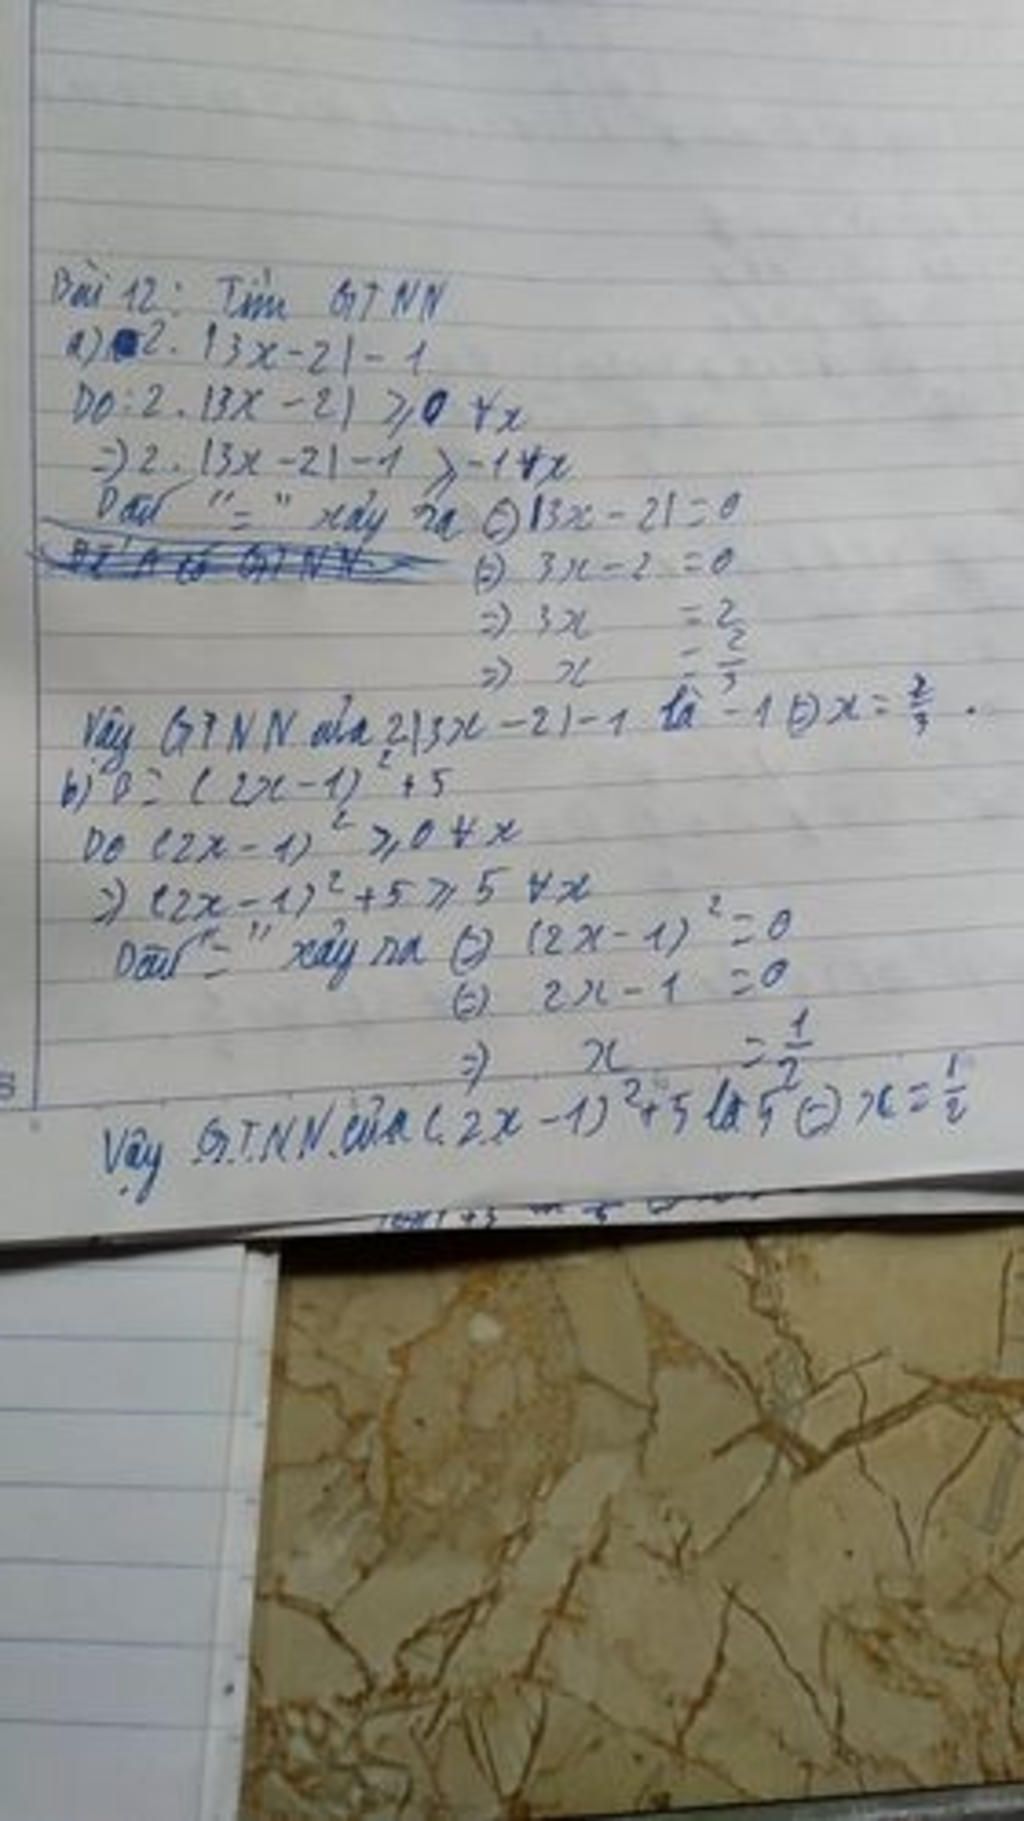 Bài 12: Tìm GTNN
a) 2. |3x-2| - 1
Do: 2. |3x - 2| ≥ 0 ∀x
=> 2. |3x - 2| - 1 ≥ -1 ∀x
Dấu "=" xảy ra (=) |3x - 2| = 0
(=) 3x - 2 = 0
=) 3x = 2
=) x = 2/3
Vậy GTNN của 2|3x - 2| - 1 là -1 (=) x = 2/3 .
b) B = (2x - 1)² + 5
Do (2x - 1)² ≥ 0 ∀x
=) (2x - 1)² + 5 ≥ 5 ∀x
Dấu "=" xảy ra (=) (2x - 1)² = 0
(=) 2x - 1 = 0
=) x = 1/2
Vậy GTNN của (2x - 1)² + 5 là 5 (=) x = 1/2